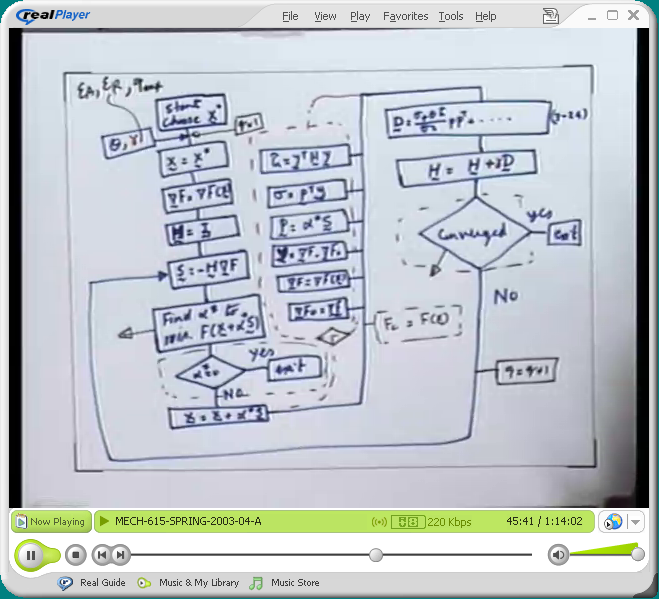 realPlayer
File View Play Favorites Tools Help
εA, εR, qmax
Start
choose X⁰
θ, γ
q=1
X = X⁰
∇F = ∇F(X)
H = I
S = -H∇F
Find α* to
min F(X+αS)
α*=0
yes
exit
No
X = X + α*S
τ = yᵀHy
σ = pᵀy
p = α*S
y = ∇F - ∇F₀
∇F = ∇F(X)
∇F₀ = ∇F
F₀ = F(X)
(3-24)
H = H + D
Converged
yes
exit
NO
q = q+1
Now Playing
MECH-615-SPRING-2003-04-A
220 Kbps
45:41 / 1:14:02
Real Guide
Music & My Library
Music Store